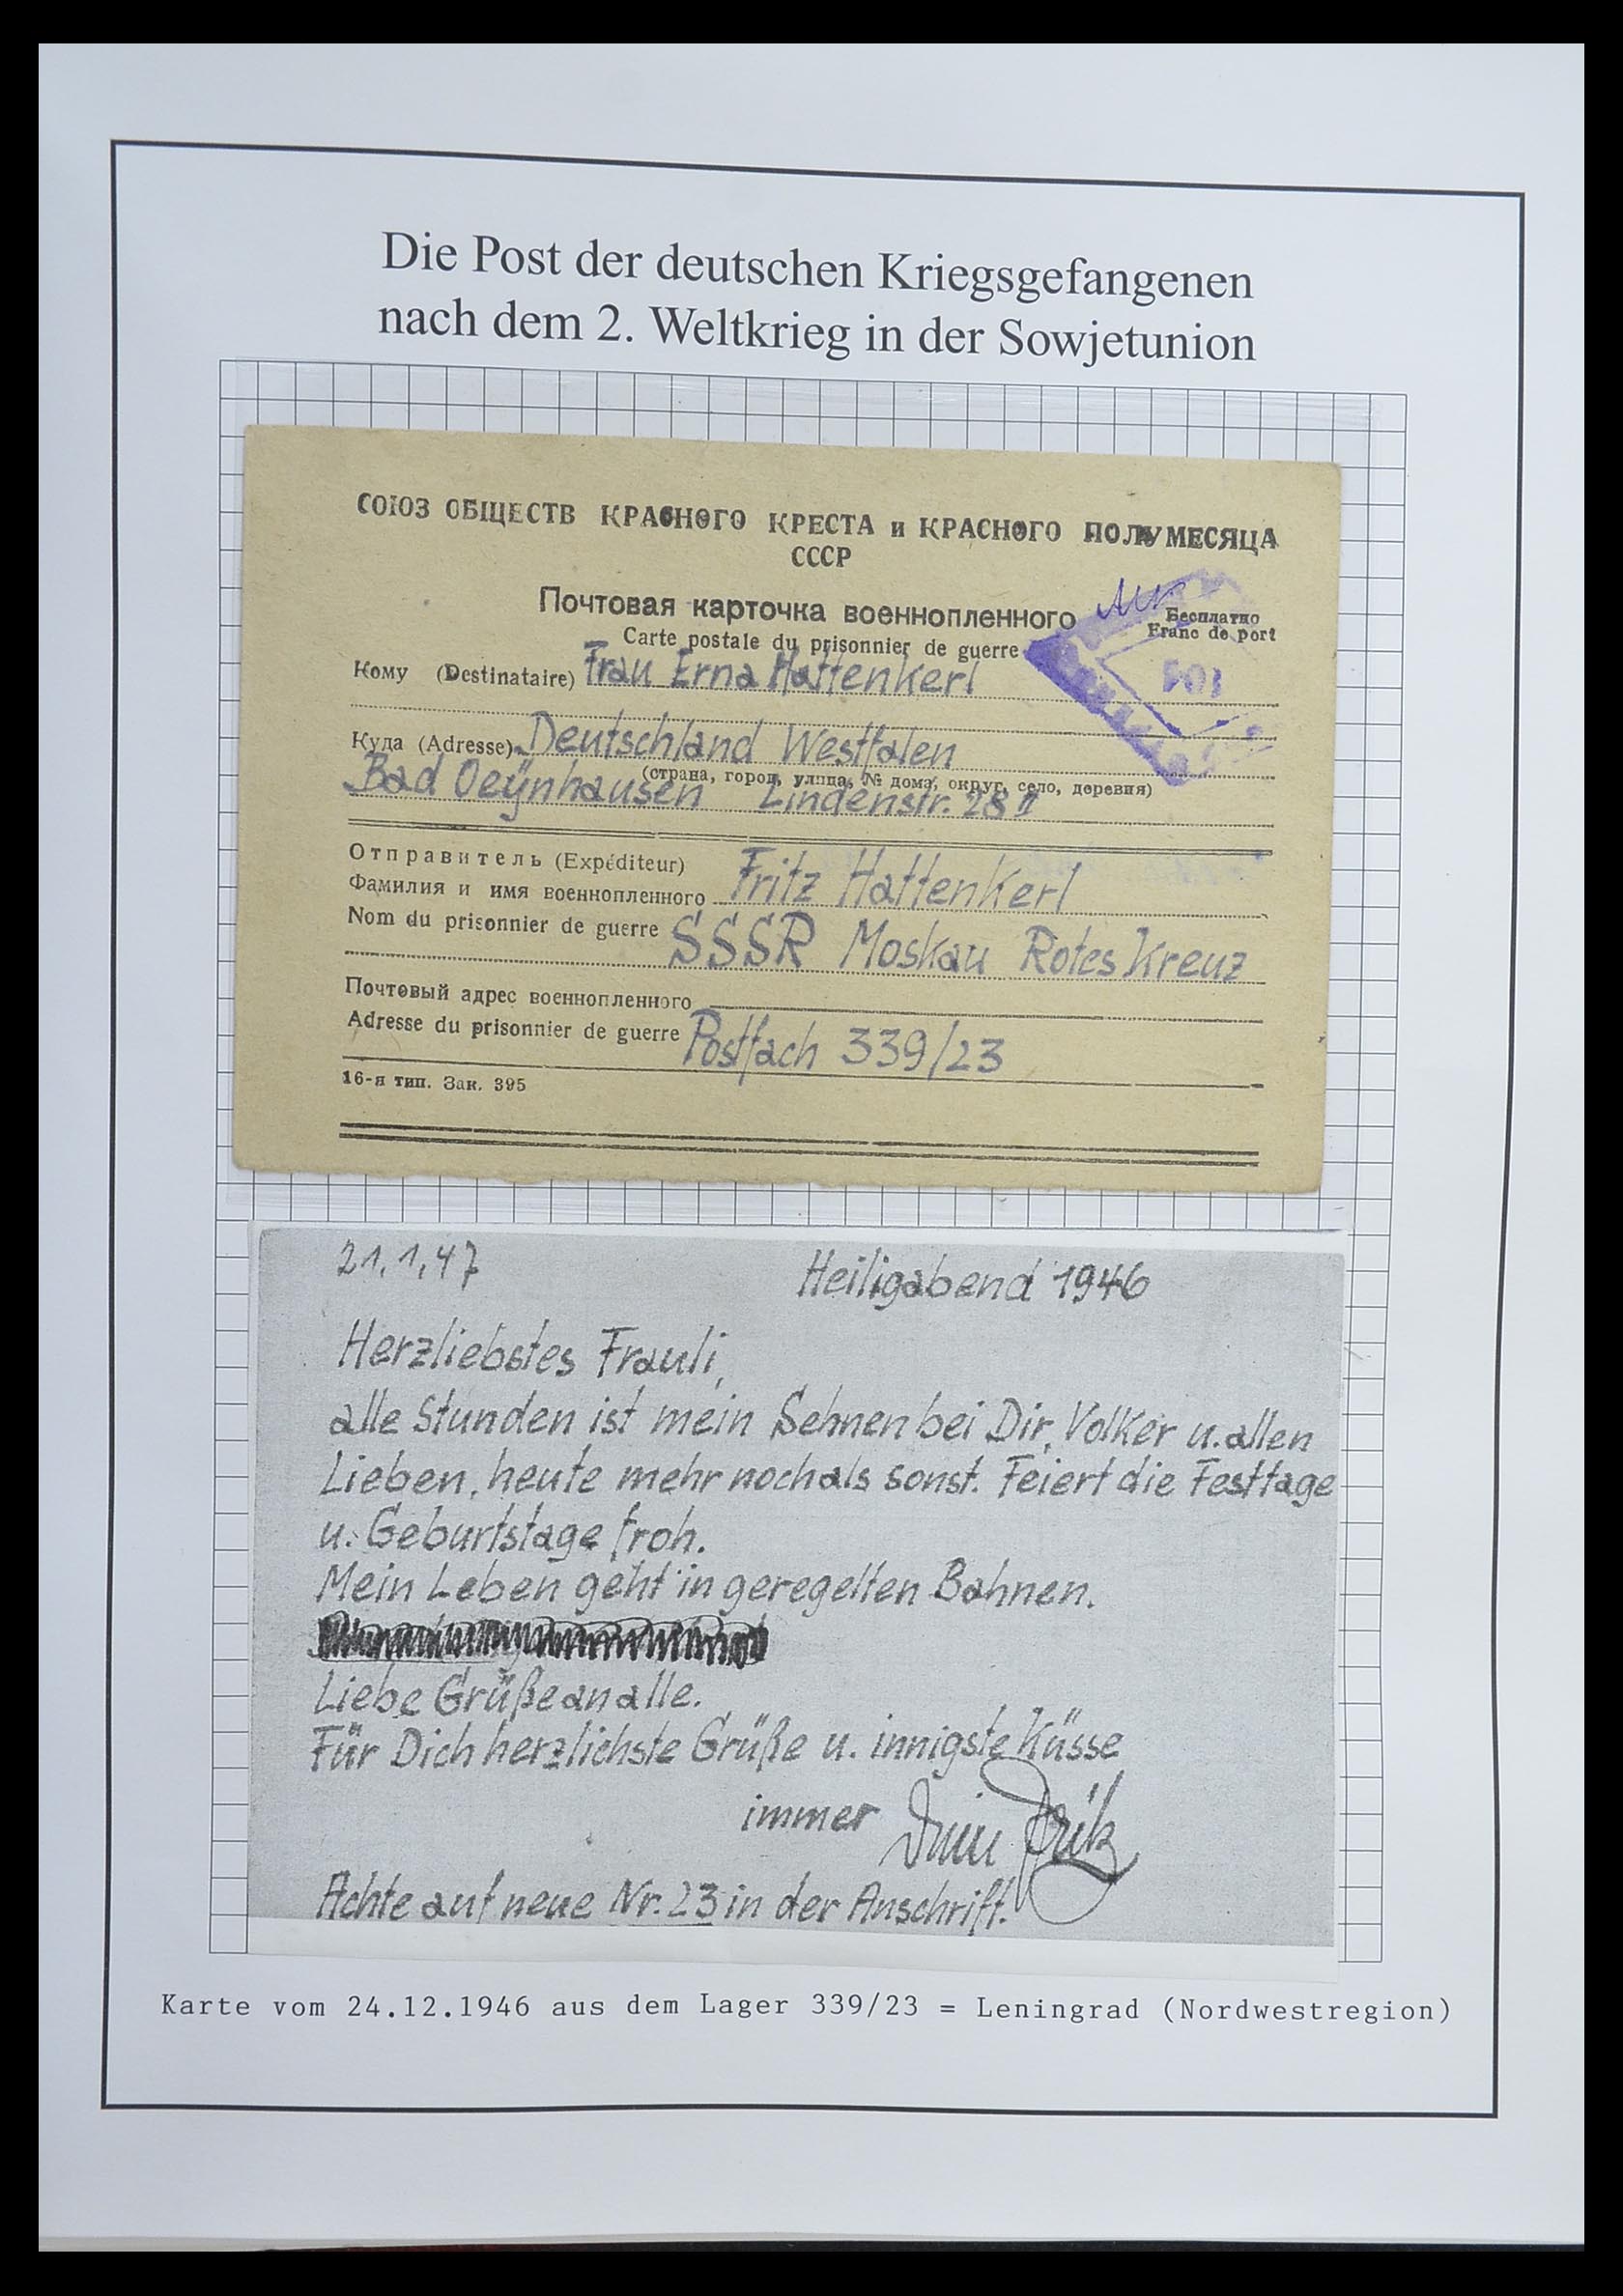 Die Post der deutschen Kriegsgefangenen
nach dem 2. Weltkrieg in der Sowjetunion
СОЮЗ ОБЩЕСТВ КРАСНОГО КРЕСТА и КРАСНОГО ПОЛУМЕСЯЦА
СССР
Почтовая карточка военнопленного
Бесплатно
Carte postale du prisonnier de guerre
Franc de port
Кому (Destinataire) Frau Erna Hattenkerl
Куда (Adresse) Deutschland Westfalen
(страна, город, улица, № дома, округ, село, деревня)
Bad Oeÿnhausen Lindenstr. 28 II
Отправитель (Expéditeur)
Фамилия и имя военнопленного Fritz Hattenkerl
Nom du prisonnier de guerre SSSR Moskau Rotes Kreuz
Почтовый адрес военнопленного
Adresse du prisonnier de guerre Postfach 339/23
16-я тип. Зак. 395
21.1.47 Heiligabend 1946
Herzliebstes Frauli,
alle Stunden ist mein Sehnen bei Dir, Volker u. allen
Lieben, heute mehr noch als sonst. Feiert die Festtage
u. Geburtstage froh.
Mein Leben geht in geregelten Bahnen.
Liebe Grüße an alle.
Für Dich herzlichste Grüße u. innigste Küsse
immer Dein Fritz
Achte auf neue Nr. 23 in der Anschrift.
Karte vom 24.12.1946 aus dem Lager 339/23 = Leningrad (Nordwestregion)